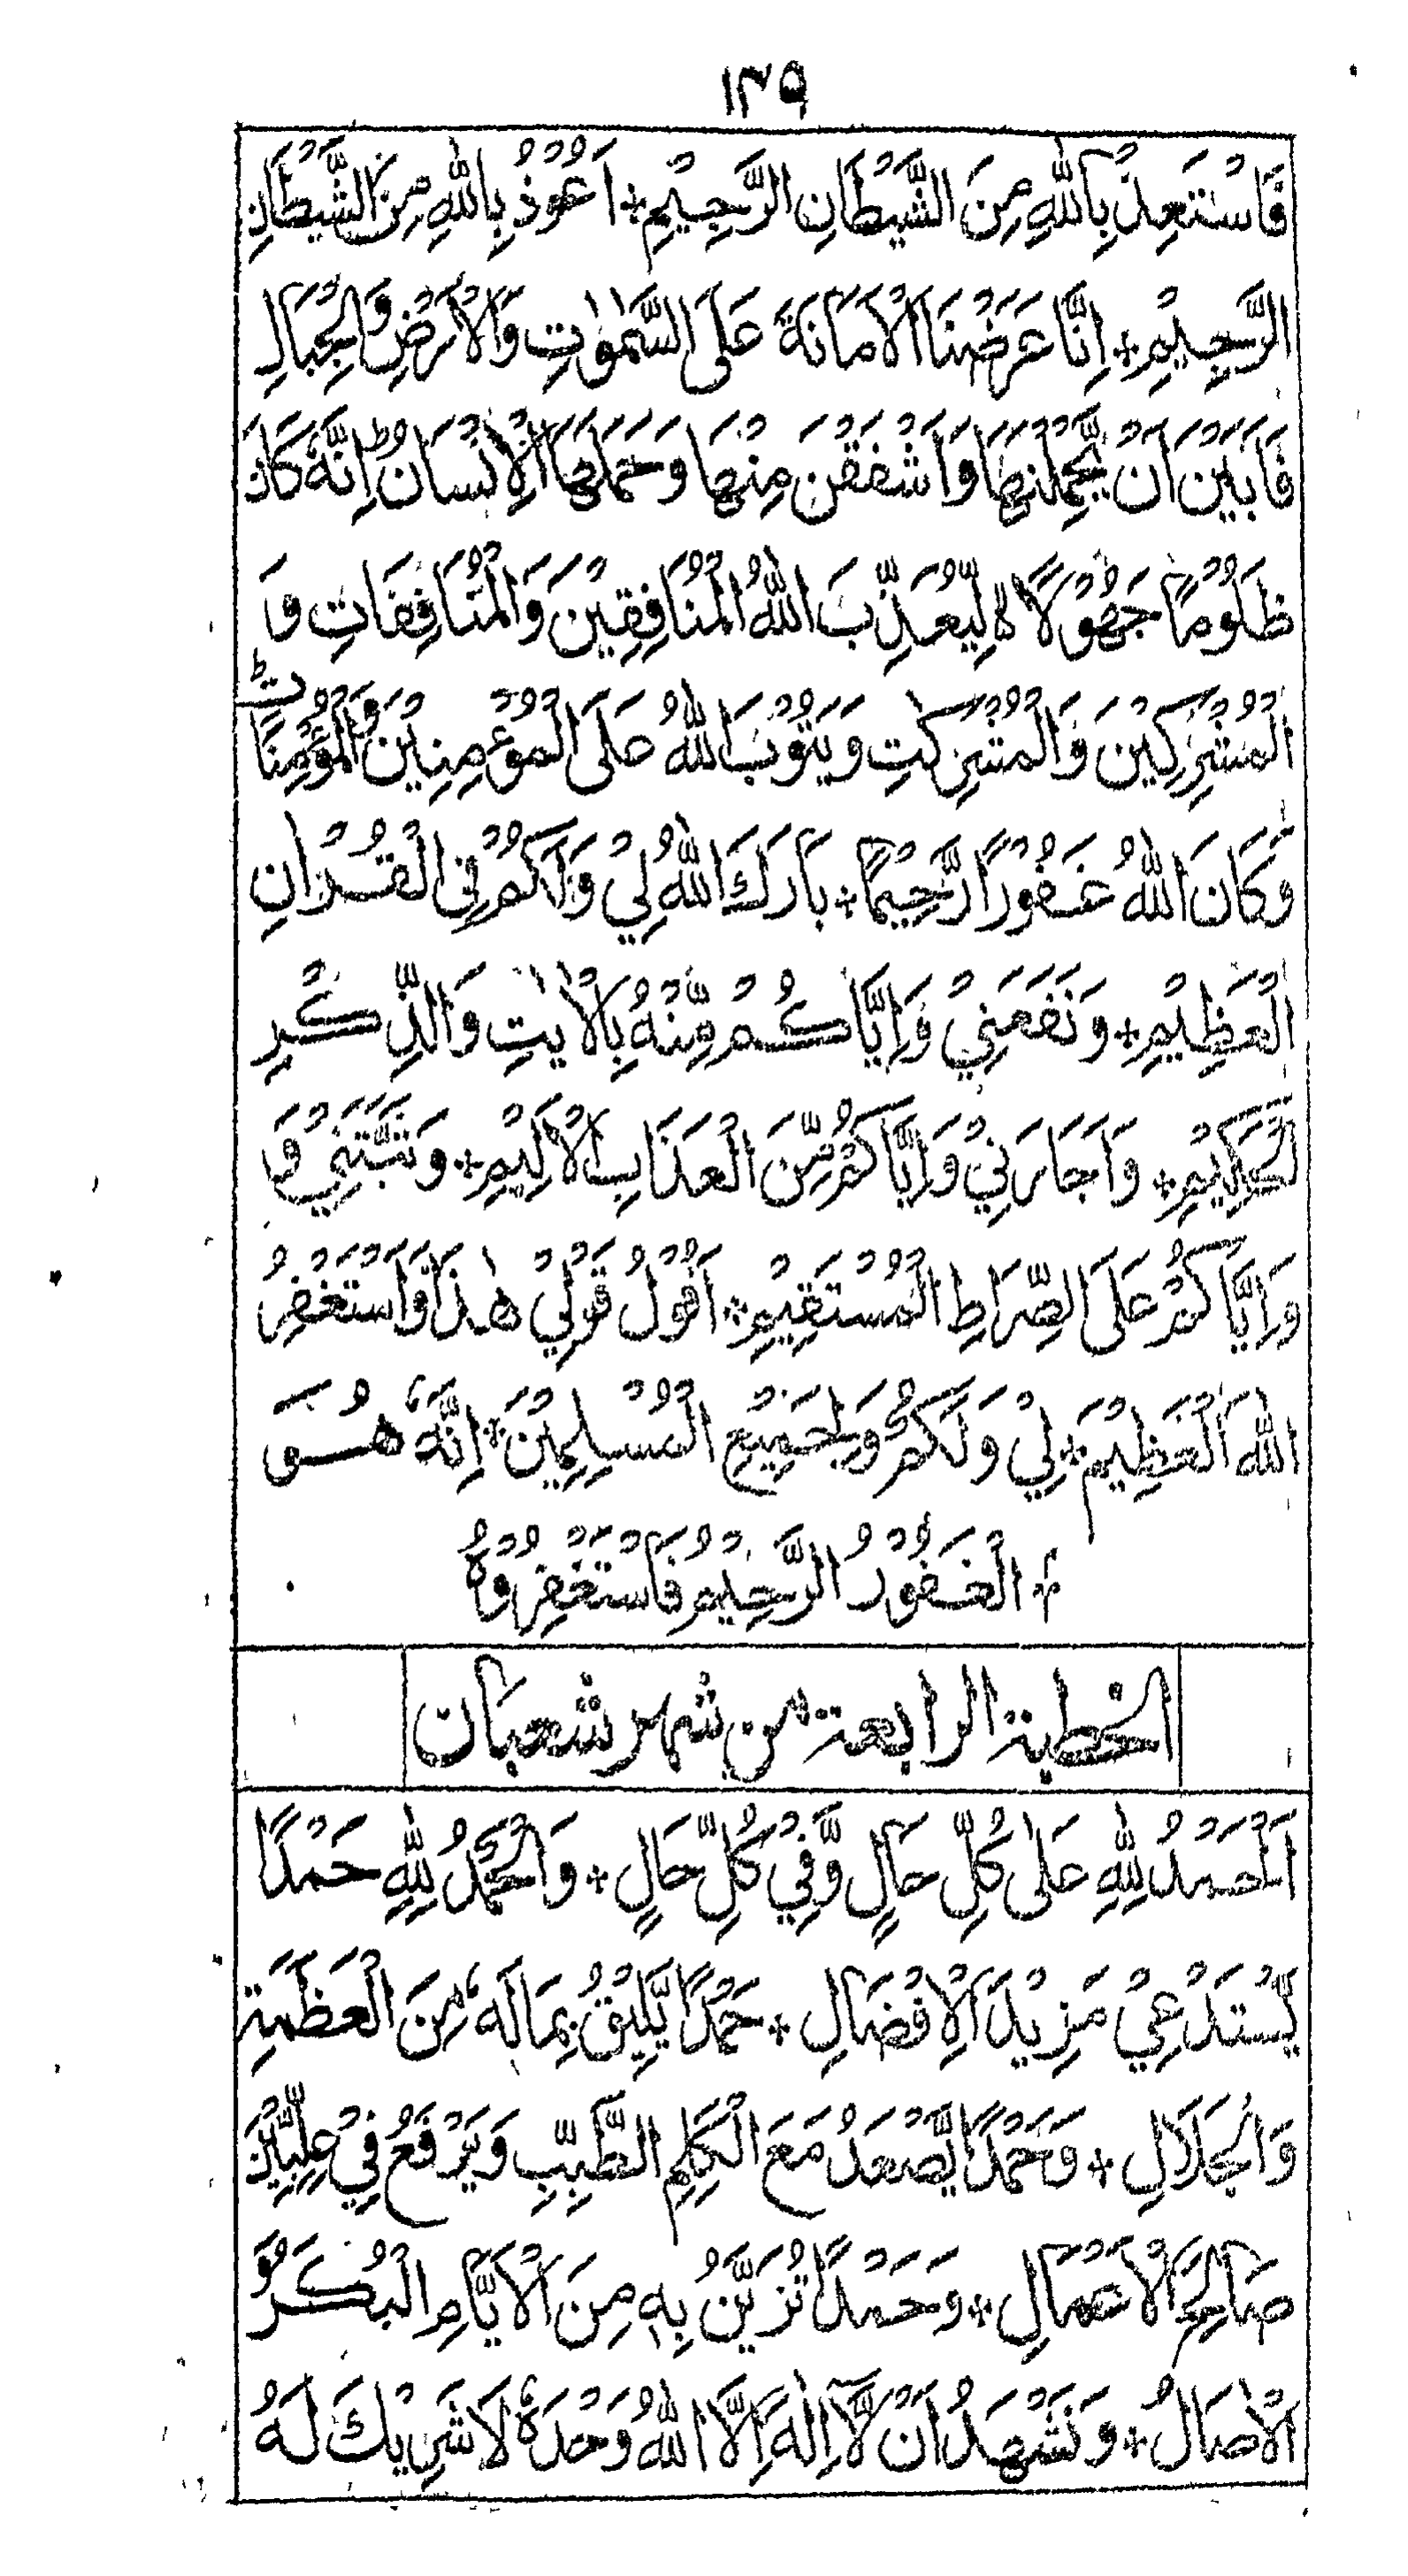 ١٣٩
فَاسْتَعِذْ بِاللّٰهِ مِنَ الشَّيْطَانِ الرَّجِيْمِ + اَعُوْذُ بِاللّٰهِ مِنَ الشَّيْطَانِ
الرَّجِيْمِ + اِنَّا عَرَضْنَا الْاَمَانَةَ عَلَى السَّمٰوٰتِ وَالْاَرْضِ وَالْجِبَالِ
فَاَبَيْنَ اَنْ يَّحْمِلْنَهَا وَاَشْفَقْنَ مِنْهَا وَحَمَلَهَا الْاِنْسَانُ ط اِنَّهٗ كَانَ
ظَلُوْمًا جَهُوْلًا ۙ لِّيُعَذِّبَ اللّٰهُ الْمُنَافِقِيْنَ وَالْمُنَافِقَاتِ وَ
الْمُشْرِكِيْنَ وَالْمُشْرِكٰتِ وَيَتُوْبَ اللّٰهُ عَلَى الْمُؤْمِنِيْنَ وَالْمُؤْمِنَاتِ ط
وَكَانَ اللّٰهُ غَفُوْرًا رَّحِيْمًا + بَارَكَ اللّٰهُ لِيْ وَلَكُمْ فِي الْقُرْاٰنِ
الْعَظِيْمِ + وَنَفَعَنِيْ وَاِيَّاكُمْ مِّنْهُ بِالْاٰيٰتِ وَالذِّكْرِ
الْحَكِيْمِ + وَاَجَارَنِيْ وَاِيَّاكُمْ مِّنَ الْعَذَابِ الْاَلِيْمِ + وَثَبَّتَنِيْ وَ
وَاِيَّاكُمْ عَلَى الصِّرَاطِ الْمُسْتَقِيْمِ + اَقُوْلُ قَوْلِيْ هٰذَا وَاَسْتَغْفِرُ
اللّٰهَ الْعَظِيْمَ + لِيْ وَلَكُمْ وَلِجَمِيْعِ الْمُسْلِمِيْنَ + اِنَّهٗ هُوَ
+ الْغَفُوْرُ الرَّحِيْمُ فَاسْتَغْفِرُوْهُ
الخطبة الرابعة من شهر شعبان
اَلْحَمْدُ لِلّٰهِ عَلٰى كُلِّ حَالٍ وَّفِيْ كُلِّ حَالٍ + وَالْحَمْدُ لِلّٰهِ حَمْدًا
يَّسْتَدْعِيْ مَزِيْدَ الْاِفْضَالِ + حَمْدًا يَّلِيْقُ بِمَا لَهٗ مِنَ الْعَظَمَةِ
وَالْجَلَالِ + وَحَمْدًا يَّصْعَدُ مَعَ الْكَلِمِ الطَّيِّبِ وَيَرْفَعُ فِيْ عِلِّيِّيْنَ
صَالِحَ الْاَعْمَالِ + وَحَمْدًا تُزَيَّنُ بِهٖ مِنَ الْاَيَّامِ الْبُكَرُ وَ
الْاٰصَالُ + وَنَشْهَدُ اَنْ لَّآ اِلٰهَ اِلَّا اللّٰهُ وَحْدَهٗ لَا شَرِيْكَ لَهُ